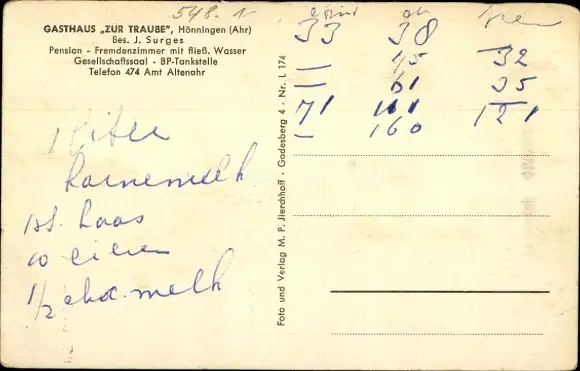 548.1-
GASTHAUS „ZUR TRAUBE", Hönningen (Ahr)
Bes. J. Surges
Pension - Fremdenzimmer mit fließ. Wasser
Gesellschaftssaal - BP-Tankstelle
Telefon 474 Amt Altenahr
1 liter
karnemelk
kaas
10 eieren
1/2 choc. melk
Foto und Verlag M. P. Jlerchhoff - Godesberg 4 - Nr. L 174
33 38 -
- 45 32
- 61 35
71 101 121
- 160